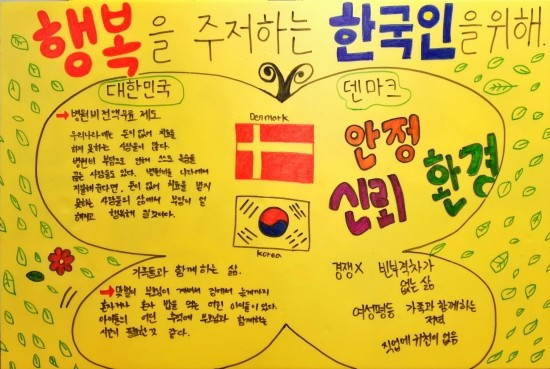 행복을 주저하는 한국인을 위해.
대한민국
→ 병원비 전액무료 제도
우리나라에는 돈이 없어 치료를
받지 못하는 사람들이 많다.
병원비 부담으로 인해 스스로 목숨을
끊는 사람들도 있다. 병원비를 나라에서
지불해 준다면, 돈이 없어 치료를 받지
못하는 사람들의 삶에서 부담이 덜
해지고 행복해 질 것이다.
가족들과 함께 하는 삶.
→ 맞벌이 부모님이 계셔서 집에서 늦게까지
혼자 있고 혼자 밥을 먹는 어린 아이들이 있다.
아이들의 어린 추억에 부모님과 함께하는
시간이 필요한 것 같다.
Denmark
Korea
덴마크
안정
신뢰
환경
경쟁X 빈부격차가
없는 삶
여성평등 가족과 함께하는
저녁
직업에 귀천이 없음